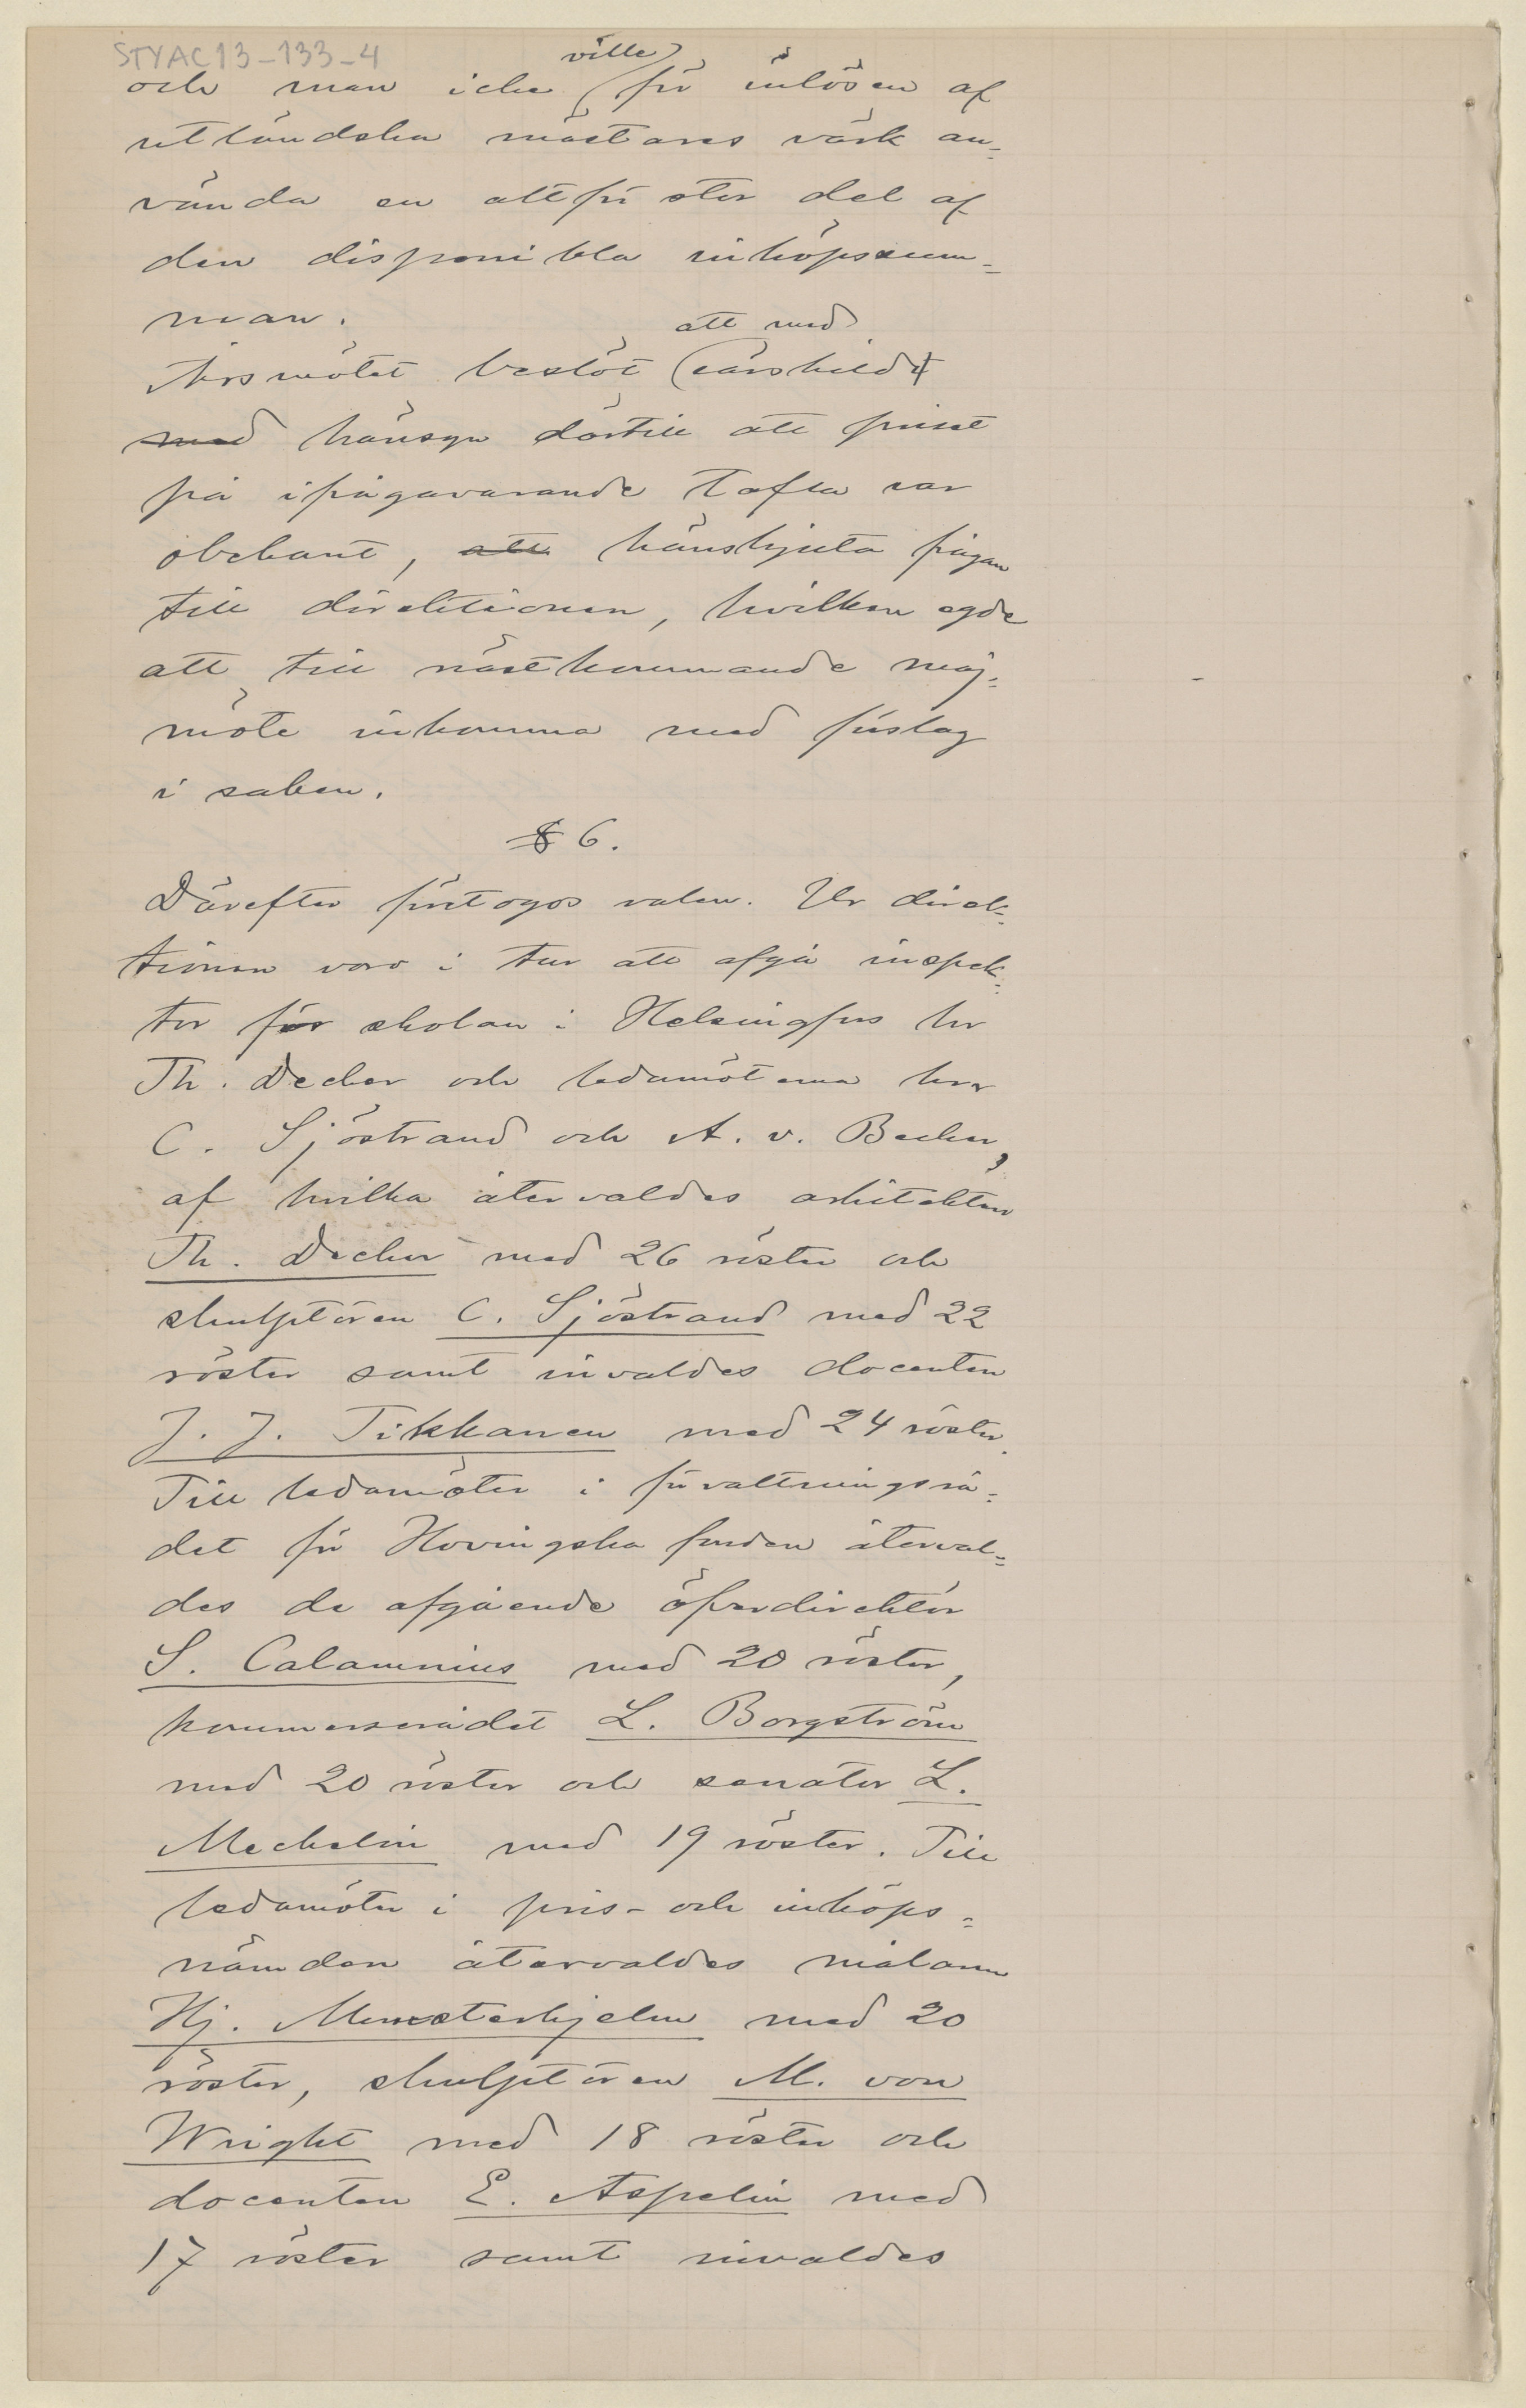 STYAC13-133-4
och man icke ville för inlösen af
utländska mästares värk an-
vända en allt för stor del af
den disponibla inköpssum-
man.
Årsmötet beslöt att med särskild
med hänsyn därtill att priset
på ifrågavarande tafla var
obekant, att hänskjuta frågan
till direktionen, hvilken egde
att till nästkommande maj-
möte inkomma med förslag
i saken.
§ 6.
Därefter företogos valen. Ur direk-
tionen voro i tur att afgå inspek-
tor för skolan i Helsingfors hr
Th. Decker och ledamöterna hrr
C. Sjöstrand och A. v. Becker,
af hvilka återvaldes arkitekten
Th. Decker med 26 röster och
skulptören C. Sjöstrand med 22
röster samt invaldes docenten
J. J. Tikkanen med 24 röster.
Till ledamöter i förvaltningsrå-
det för Hovingska fonden återval-
des de afgående öfverdirektör
S. Calamnius med 20 röster,
kommerserådet L. Borgström
med 20 röster och senator L.
Mechelin med 19 röster. Till
ledamöter i pris- och inköps-
nämden återvaldes målaren
Hj. Munsterhjelm med 20
röster, skulptören M. von
Wright med 18 röster och
docenten E. Aspelin med
17 röster samt invaldes